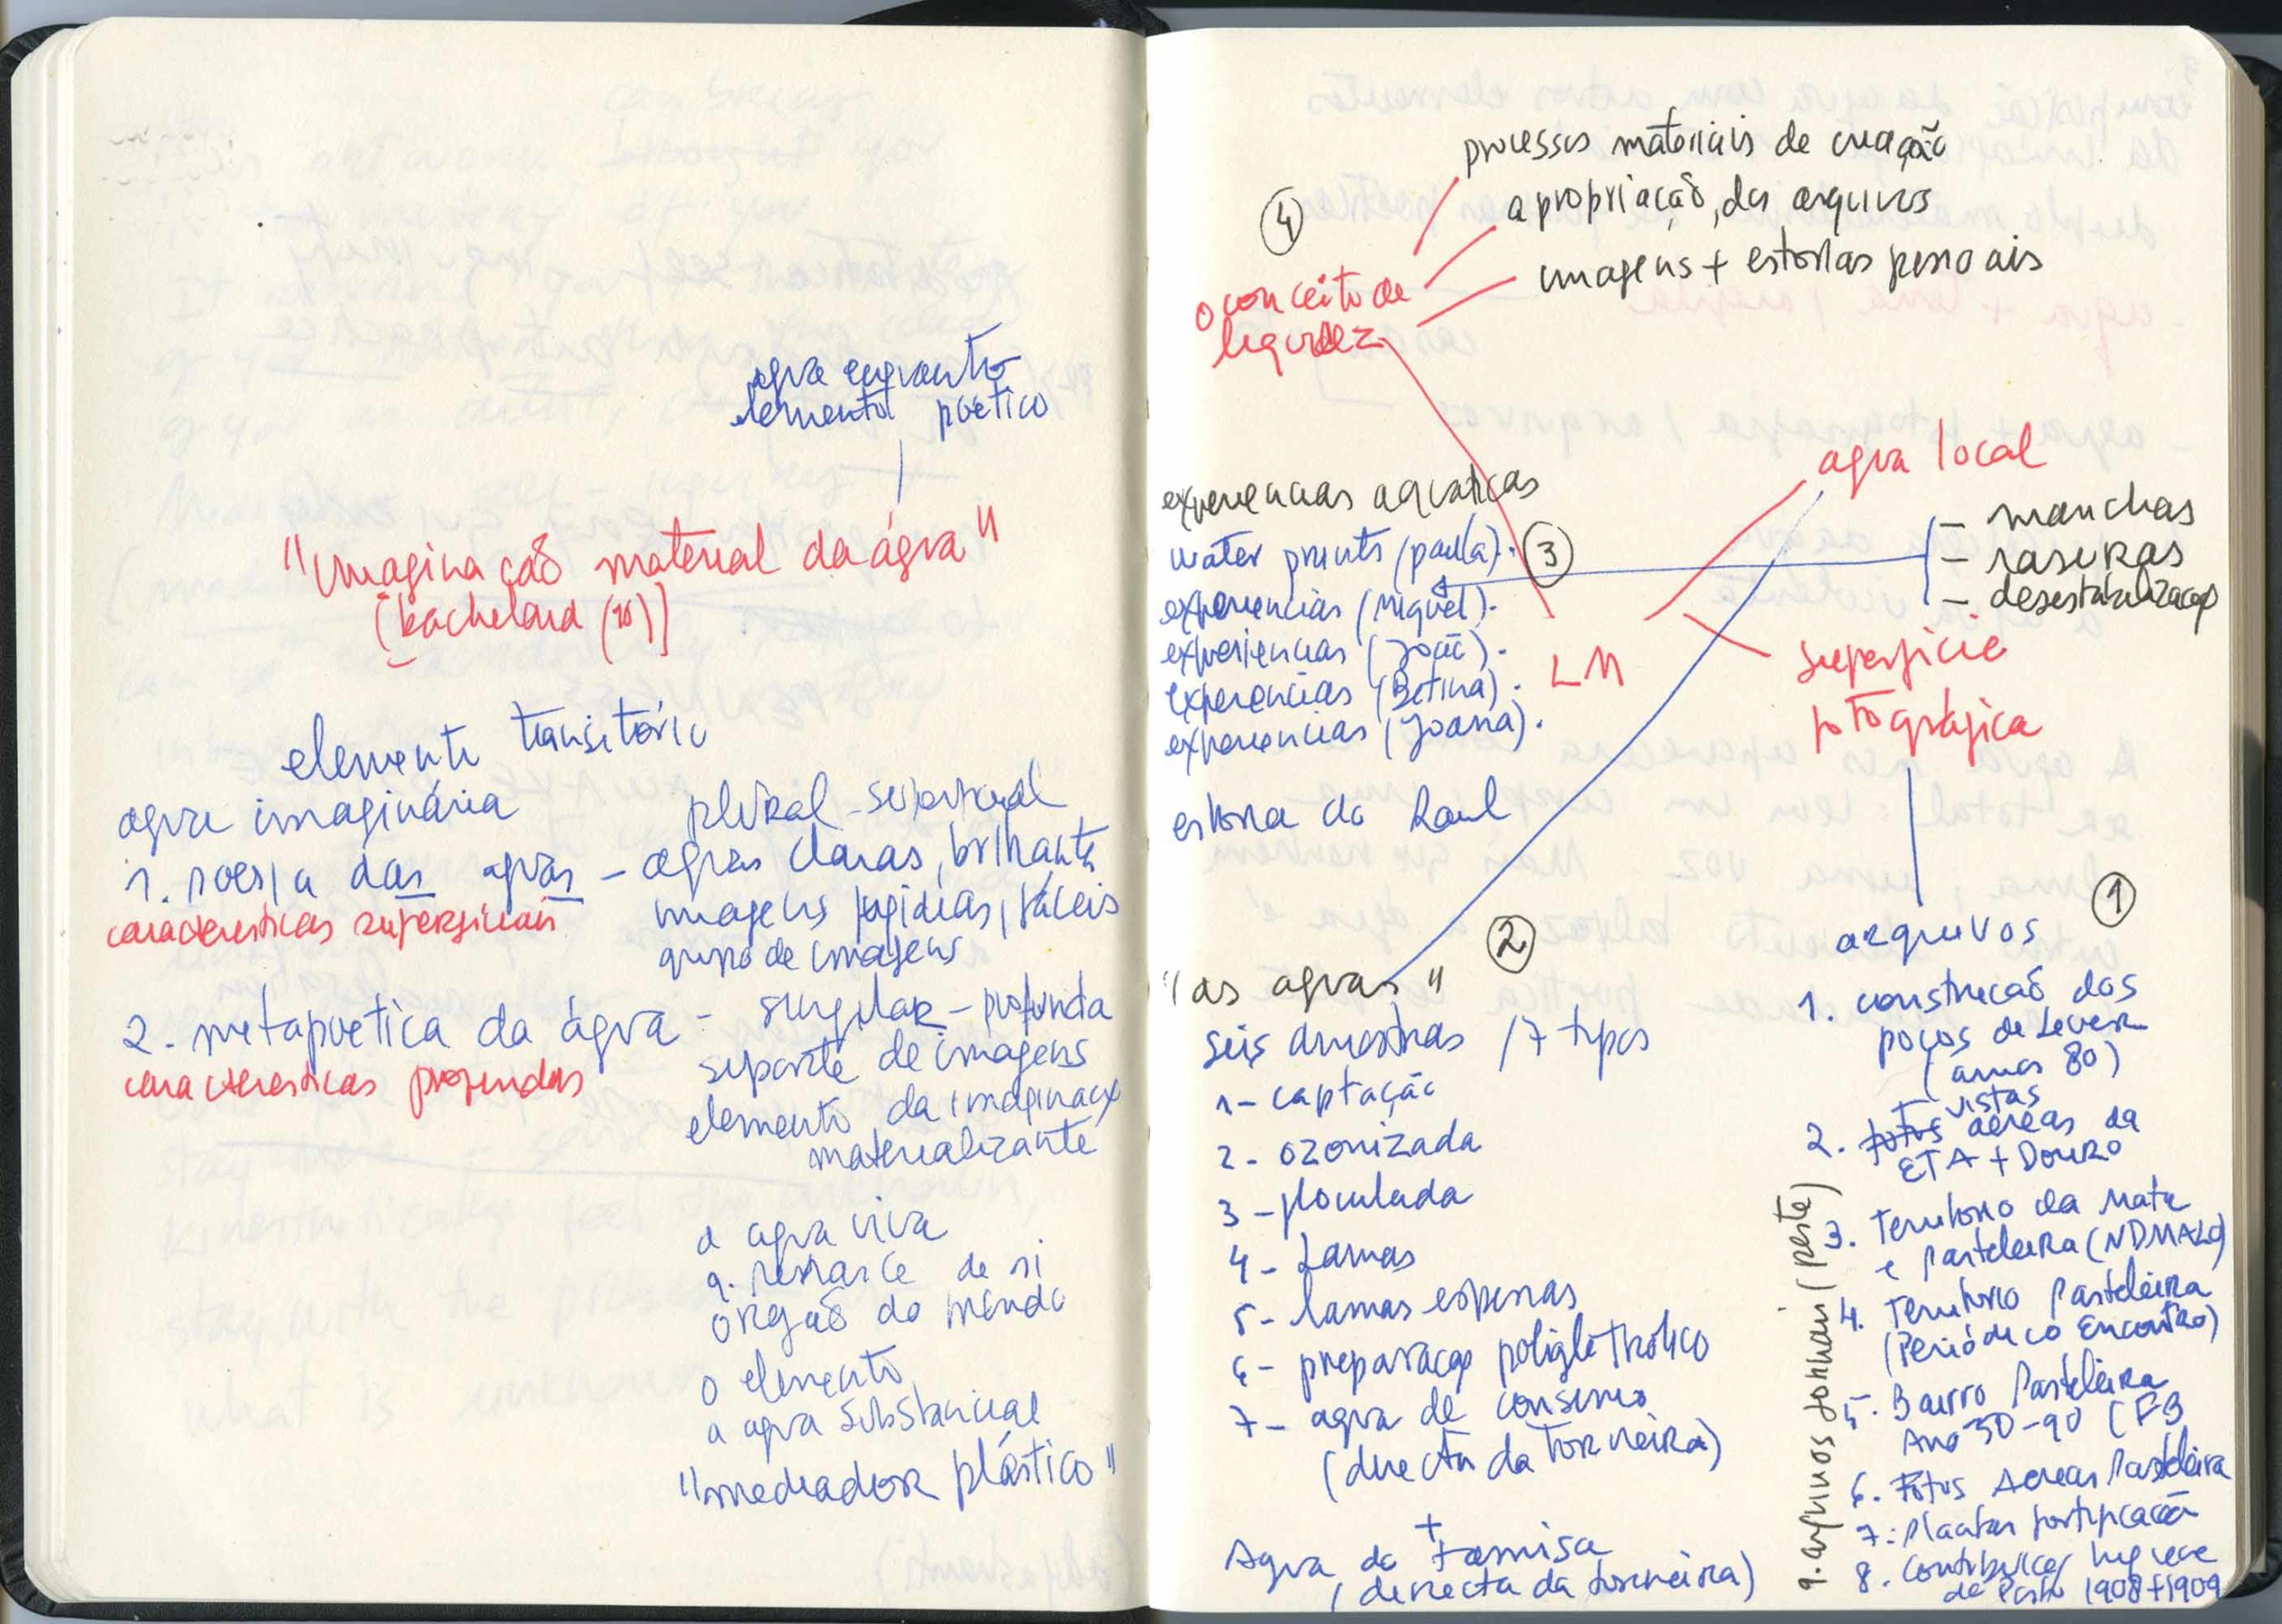 agua enquanto
elemento poético
"imaginação material da água"
[bachelard (98)]
elemento transitório
agua imaginária
1. poesia das aguas
caracteristicas superficiais
plural - superficial
- aguas claras, brilhantes
imagens fugidias, fáceis
grupo de imagens
2. metapoetica da água
caracteristicas profundas
- singular - profunda
suporte de imagens
elemento da imaginação
materializante
a agua viva
q. renasce de si
orgão do mundo
o elemento
a agua substancial
"mediador plástico"
4
processos materiais de criação
apropriação, dos arquivos
imagens + estorias pessoais
o conceito de
liquidez
agua local
experiencias aquaticas
water prints (paula).
experiencias (Miguel).
experiencias (João).
experiencias (Betina).
experiencias (Joana).
estoria do Raul
3
- manchas
- rasuras
- desestabilização
LM
superficie
fotográfica
2
"as aguas"
seis amostras / 7 tipos
1- captação
2- ozonizada
3- floculada
4- Lamas
5- lamas espessas
6- preparação
7- agua de consumo
(directa da torneira)
+
Agua do Tamisa
(directa da torneira)
1
arquivos
1. construcão dos
poços de Lever
(anos 80)
+ vistas
2. fotos aéreas da
ETA + Douro
3. Territorio da Mata
e Pasteleira (NDMALO)
4. Territorio Pasteleira
(Periódico Encontro)
5. Bairro Pasteleira
Ano 50-90 (FB
6. Fotos Aereas Pasteleira
7. Plantas fortificacão
8. Contribuição higiene
do Porto 1908+1909
9. arquivos jornais (peste)